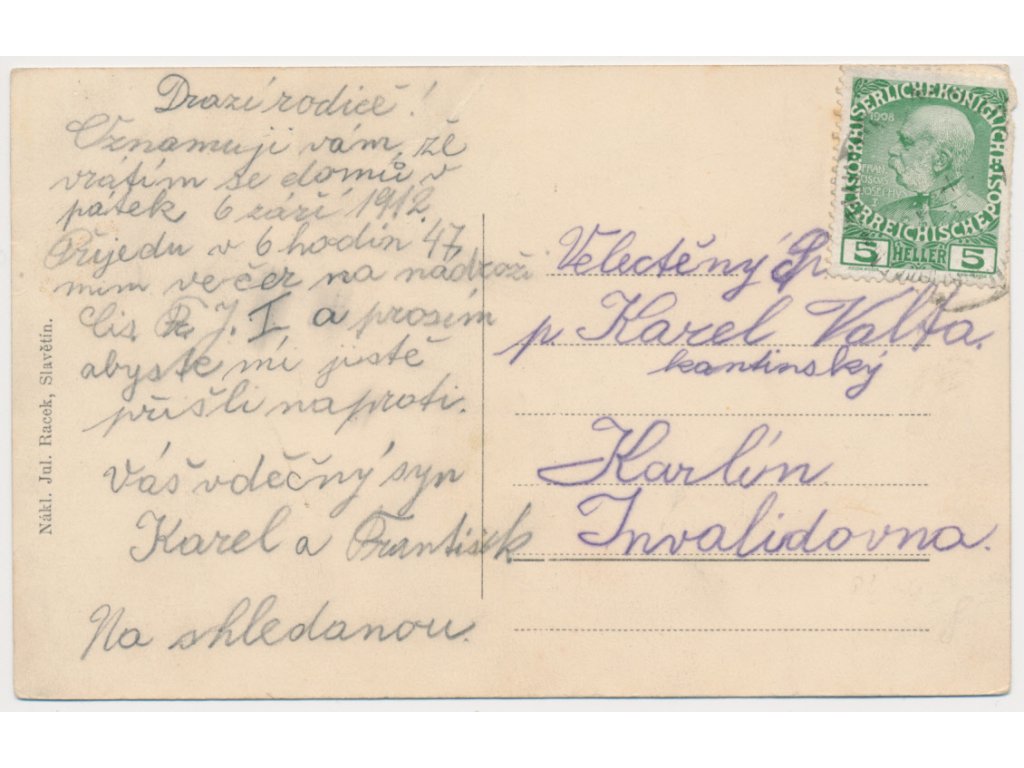 Drazí rodiče!
Oznamuji vám, že
vrátím se domů v
pátek 6 září 1912.
Přijedu v 6 hodin 47
min večer na nádraží
cís. F. J. I a prosím
abyste mi jistě
přišli naproti.
Váš vděčný syn
Karel a František
Na shledanou.
Nákl. Jul. Racek, Slavětín.
KAISERLICHE KÖNIGLICHE ÖSTERREICHISCHE POST
1908
FRANZ JOSEPH I
5 HELLER 5
Velectěný
p. Karel Valta.
kantinský
Karlín
Invalidovna.